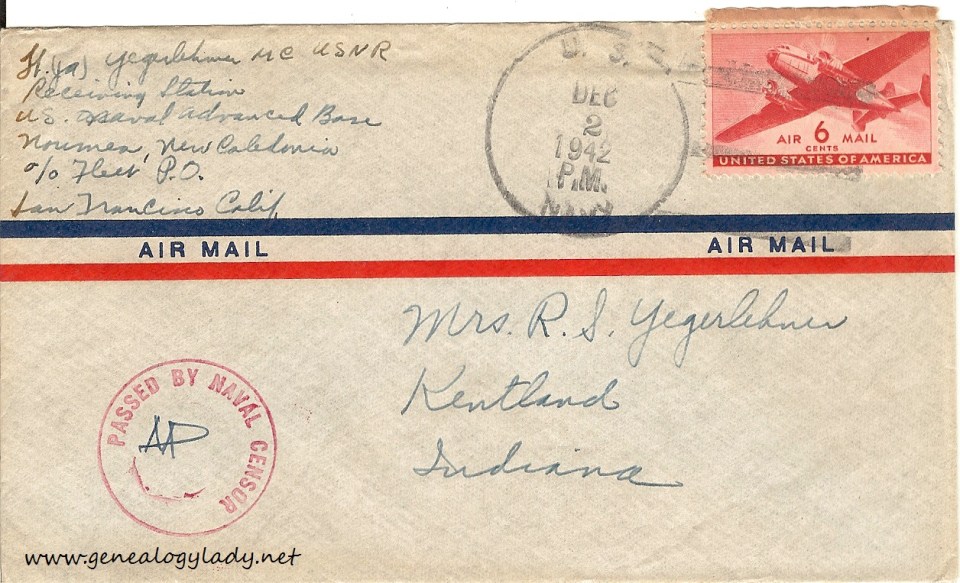 Lt. (jg) Yegerlehner MC USNR
Receiving Station
U.S. Naval Advanced Base
Noumea, New Caledonia
c/o Fleet P.O.
San Francisco Calif.
U. S.
DEC
2
1942
P.M.
NAVY
AIR 6 MAIL
CENTS
UNITED STATES OF AMERICA
AIR MAIL
AIR MAIL
Mrs. R. S. Yegerlehner
Kentland
Indiana
PASSED BY NAVAL CENSOR
www.genealogylady.net